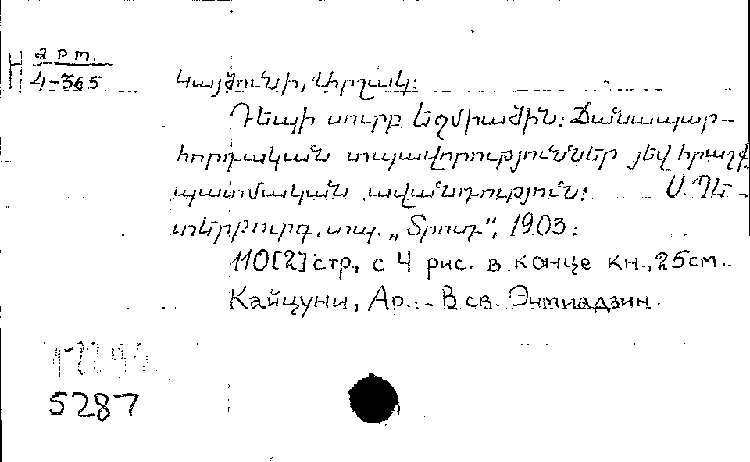 Н арт.
4-365
Կայծունի, Արշակ:
Դեպի սուրբ Եջմիածին: Ճանապար-
հորդական տպաւորութիւններ եւ հրաշք
պատմական աւանդութիւն: Ս. Պե-
տերբուրգ, տպ. „Տրուդ“, 1903:
110[2] стр, с 4 рис. в конце кн., 25см.
Кайцуни, Ар. - В св. Эчмиадзин.
5287